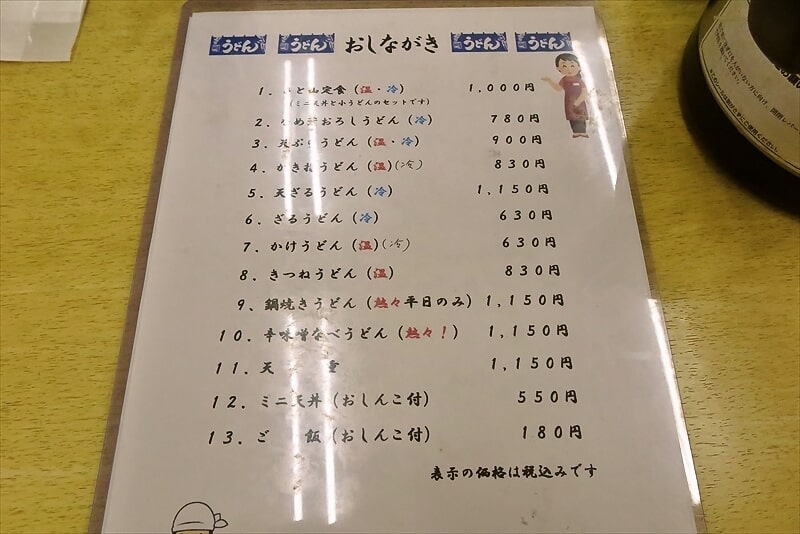 うどん うどん おしながき うどん うどん
1. 山定食(温・冷) 1,000円
(ミニ天丼と小うどんのセットです)
2. おろしうどん(冷) 780円
3. 天ぷらうどん(温・冷) 900円
4. かき揚うどん(温)(冷) 830円
5. 天ざるうどん(冷) 1,150円
6. ざるうどん(冷) 630円
7. かけうどん(温)(冷) 630円
8. きつねうどん(温) 830円
9. 鍋焼きうどん(熱々平日のみ) 1,150円
10. 辛味噌なべうどん(熱々!) 1,150円
11. 天 重 1,150円
12. ミニ天丼(おしんこ付) 550円
13. ご 飯(おしんこ付) 180円
表示の価格は税込みです